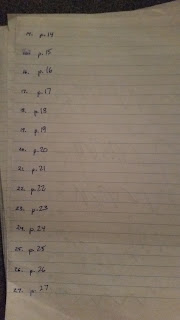 14. p.14
p.15
16. p.16
17. p.17
18. p.18
19. p.19
20. p.20
21. p.21
22. p.22
23. p.23
24. p.24
25. p.25
26. p.26
27. p.27